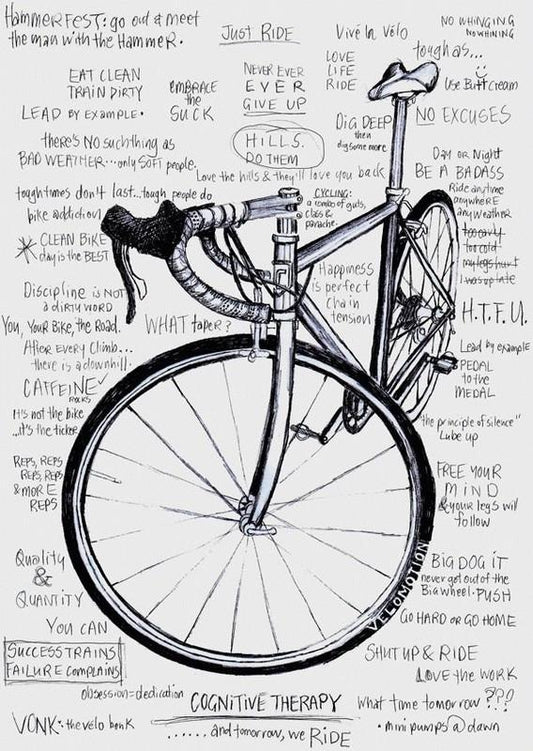 HAMMERFEST: go out & meet
the man with the HAMMER.
JUST RIDE
Vivé la Vélo
NO WHINGING
NO WHINING
EAT CLEAN
TRAIN DIRTY
EMBRACE
the
SUCK
NEVER EVER
EVER
GIVE UP
LOVE
LIFE
RIDE
tough as...
Use Butt Cream
LEAD by example.
DIG DEEP
then
dig some more
NO EXCUSES
there's NO such thing as
BAD WEATHER...only SOFT people.
HILLS.
DO THEM
Love the hills & they'll love you back
Day or Night
BE A BADASS
Ride anytime
anywhere
any weather
too early
too cold
my legs hurt
I was up late
tough times don't last...tough people do
bike addiction!
CYCLING:
a combo of guts,
class &
panache.
CLEAN BIKE
day is the BEST
Happiness
is perfect
chain
tension
Discipline is NOT
a dirty word
H.T.F.U.
You, Your Bike, the Road.
WHAT taper?
After every climb...
there is a downhill.
Lead by example
PEDAL
to the
MEDAL
CAFFEINE
ROCKS
It's not the bike
...it's the ticker
"the principle of silence"
Lube up
REPS, REPS
REPS, REPS
& more
REPS
FREE YOUR
MIND
& your legs will
follow
Quality
&
QUANTITY
BIG DOG IT
never get out of the
Big wheel. PUSH
VELOMOTION
GO HARD or GO HOME
YOU CAN
SUCCESS TRAINS
FAILURE COMPLAINS
SHUT UP & RIDE
LOVE the WORK
obsession=dedication
COGNITIVE THERAPY
What time tomorrow ???
VONK: the velo bonk
......and tomorrow, we RIDE
. mini pumps @ dawn